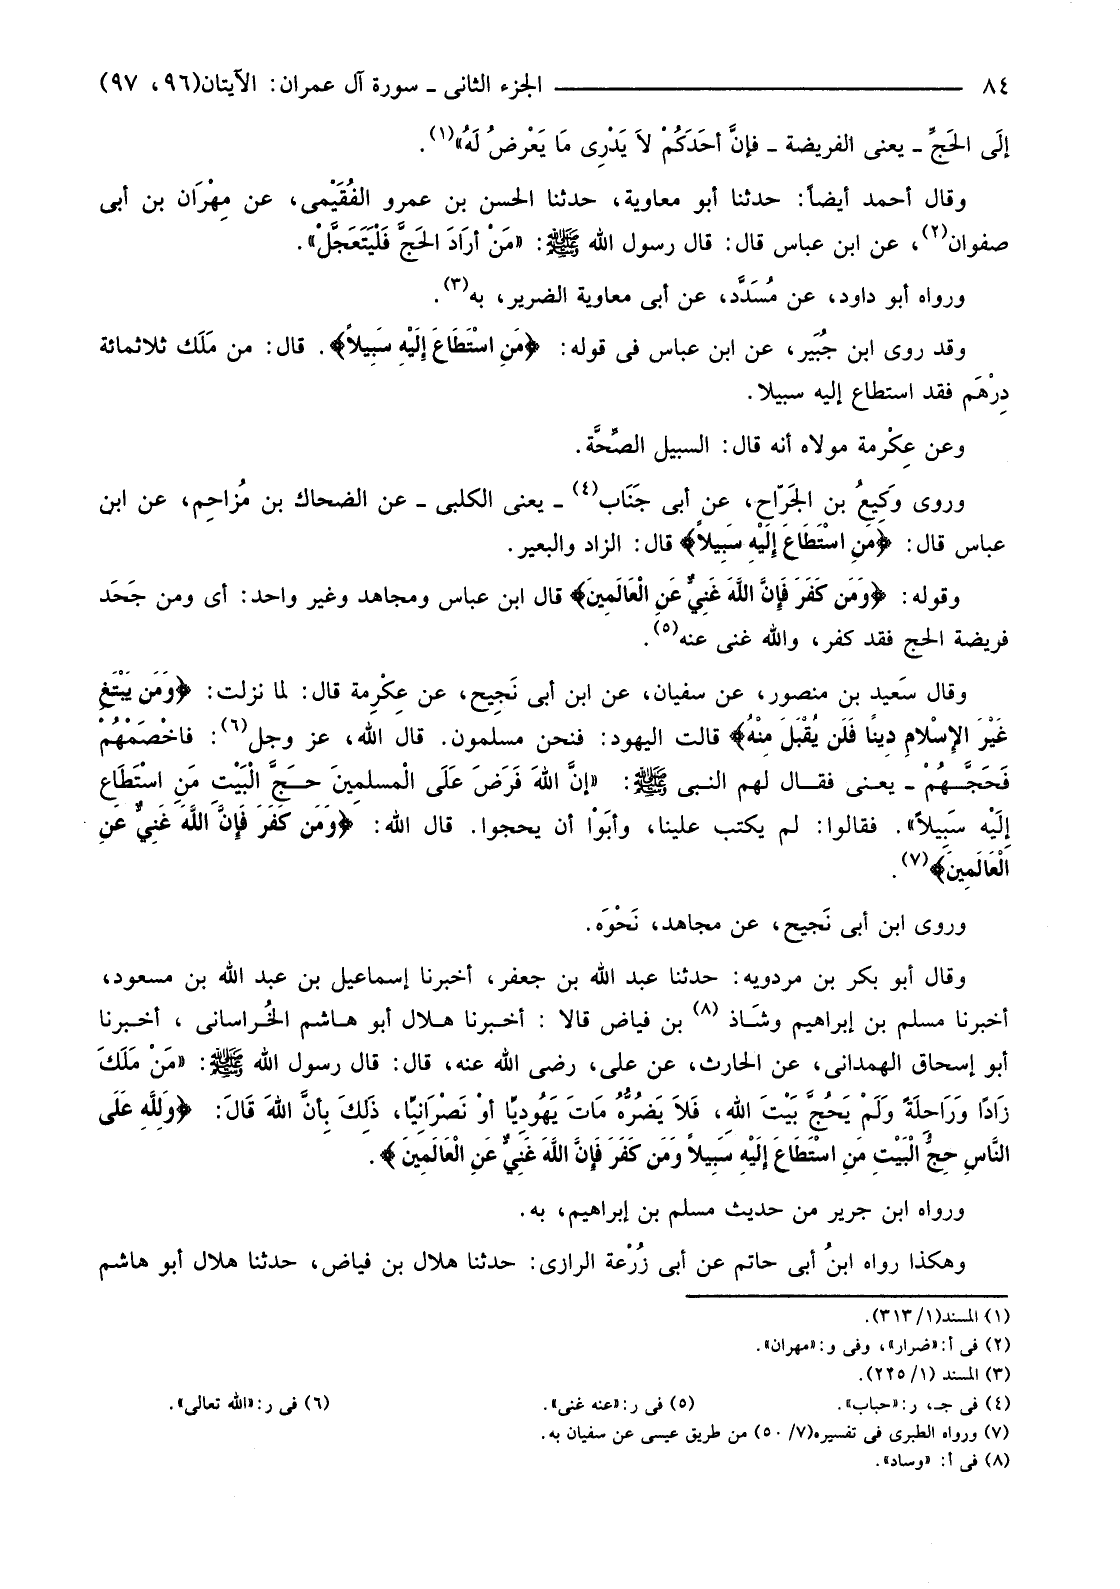 ٨٤ ـــــــــــــــــــــــــ الجزء الثانى ـ سورة آل عمران: الآيتان(٩٦، ٩٧)
إلَى الحَجِّ ـ يعنى الفريضة ـ فإنَّ أحَدَكُمْ لاَ يَدْرِى مَا يَعْرضُ لَهُ»(١).
وقال أحمد أيضاً: حدثنا أبو معاوية، حدثنا الحسن بن عمرو الفُقَيْمى، عن مِهْرَان بن أبى
صفوان(٢)، عن ابن عباس قال: قال رسول الله ﷺ: «مَنْ أرَادَ الحَجَّ فَلْيَتَعَجَّلْ».
ورواه أبو داود، عن مُسَدَّد، عن أبى معاوية الضرير، به(٣).
وقد روى ابن جُبَير، عن ابن عباس فى قوله: ﴿مَنِ اسْتَطَاعَ إِلَيْهِ سَبِيلاً﴾. قال: من مَلَك ثلاثمائة
دِرْهَم فقد استطاع إليه سبيلا.
وعن عِكْرمة مولاه أنه قال: السبيل الصِّحَّة.
وروى وَكِيعُ بن الجَرّاح، عن أبى جَنَاب(٤) ـ يعنى الكلبى ـ عن الضحاك بن مُزَاحِم، عن ابن
عباس قال: ﴿مَنِ اسْتَطَاعَ إِلَيْهِ سَبِيلاً﴾ قال: الزاد والبعير.
وقوله: ﴿وَمَن كَفَرَ فَإِنَّ اللَّهَ غَنِيٌّ عَنِ الْعَالَمِينَ﴾ قال ابن عباس ومجاهد وغير واحد: أى ومن جَحَد
فريضة الحج فقد كفر، والله غنى عنه(٥).
وقال سَعيد بن منصور، عن سفيان، عن ابن أبى نَجيح، عن عِكْرِمة قال: لما نزلت: ﴿وَمَن يَبْتَغِ
غَيْرَ الإِسْلامِ دِينًا فَلَن يُقْبَلَ مِنْهُ﴾ قالت اليهود: فنحن مسلمون. قال الله، عز وجل(٦): فاخْصَمْهُمْ
فَحَجَّهُمْ ـ يعنى فقال لهم النبى ﷺ: «إنَّ اللهَ فَرَضَ عَلَى الْمسلمِينَ حجَّ الْبَيْتِ مَنِ اسْتَطَاع
إلَيْه سَبِيلاً». فقالوا: لم يكتب علينا، وأبَوْا أن يحجوا. قال الله: ﴿وَمَن كَفَرَ فَإِنَّ اللَّهَ غَنِيٌّ عَنِ
الْعَالَمِينَ﴾(٧).
وروى ابن أبى نَجيح، عن مجاهد، نَحْوَه.
وقال أبو بكر بن مردويه: حدثنا عبد الله بن جعفر، أخبرنا إسماعيل بن عبد الله بن مسعود،
أخبرنا مسلم بن إبراهيم وشَاذ (٨) بن فياض قالا : أخبرنا هلال أبو هاشم الخُراسانى ، أخبرنا
أبو إسحاق الهمدانى، عن الحارث، عن على، رضى الله عنه، قال: قال رسول الله ﷺ: «مَنْ مَلَكَ
زَادًا وَرَاحِلَةً وَلَمْ يَحُجَّ بَيْتَ اللهِ، فَلاَ يَضُرُّه مَاتَ يَهُودِيًا أوْ نَصْرَانِيًا، ذَلِكَ بِأنَّ اللهَ قَالَ: ﴿وَلِلَّهِ عَلَى
النَّاسِ حِجُّ الْبَيْتِ مَنِ اسْتَطَاعَ إِلَيْهِ سَبِيلاً وَمَن كَفَرَ فَإِنَّ اللَّهَ غَنِيٌّ عَنِ الْعَالَمِينَ ﴾.
ورواه ابن جرير من حديث مسلم بن إبراهيم، به.
وهكذا رواه ابنُ أبى حاتم عن أبى زُرْعة الرازى: حدثنا هلال بن فياض، حدثنا هلال أبو هاشم
(١) المسند(١/ ٣١٣).
(٢) فى أ: «ضرار»، وفى و: «مهران».
(٣) المسند (١/ ٢٢٥).
(٤) فى جـ، ر: «حباب».
(٥) فى ر: «عنه غنى».
(٦) فى ر: «الله تعالى».
(٧) ورواه الطبرى فى تفسيره(٧/ ٥٠) من طريق عيسى عن سفيان به.
(٨) فى أ: «وساد».